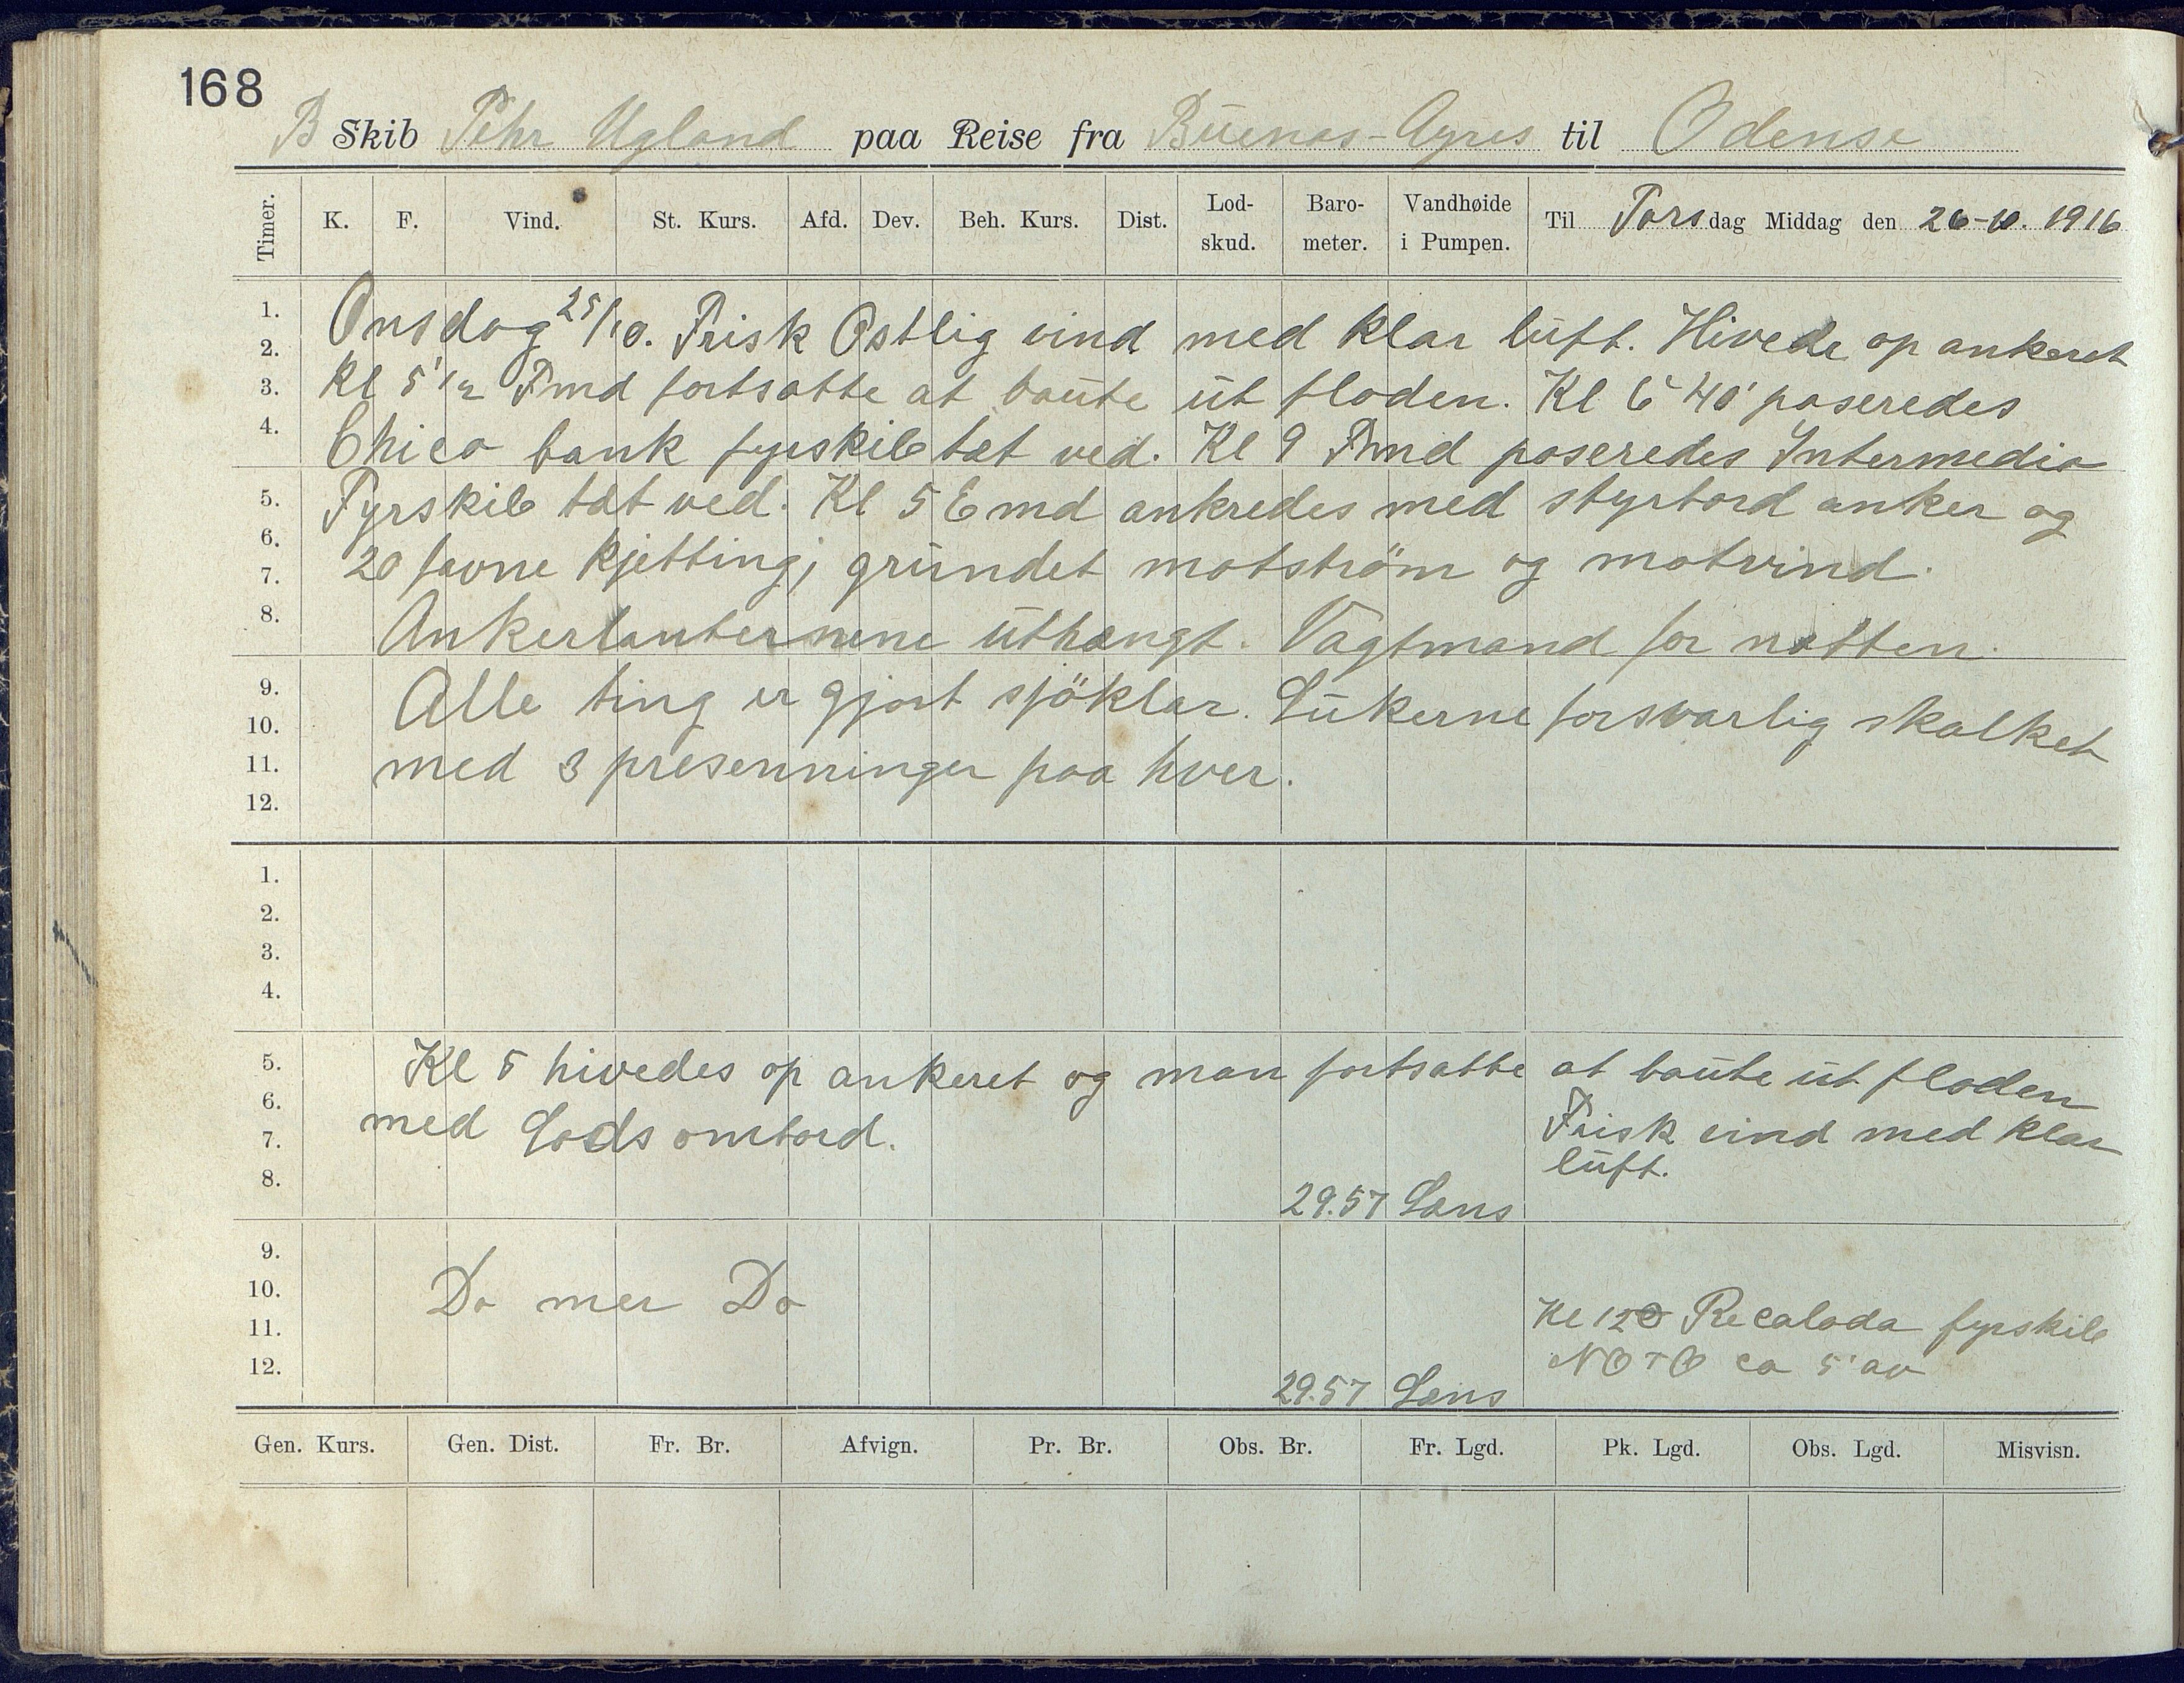 168
B Skib Pehr Ugland paa Reise fra Buenas-Ayres til Odense
Timer. K. F. Vind. St. Kurs. Afd. Dev. Beh. Kurs. Dist. Lod-skud. Baro-meter. Vandhøide i Pumpen. Til Torsdag Middag den 26-10. 1916
1.
2.
3.
4.
5.
6.
7.
8.
9.
10.
11.
12.
Onsdag 25/10. Frisk Ostlig vind med klar luft. Hivede op ankeret
Kl 5 1/2 Fmd fortsatte at baute ut floden. Kl 6 40' paseredes
Chico bank fyrskib tæt ved. Kl 9 Fmd paseredes Intermedia
Fyrskib tæt ved. Kl 5 Emd ankredes med styrbord anker og
20 favne kjetting, grundet motström og motvind.
Ankerlanternene uthængt. Vagtmand for natten.
Alle ting er gjort sjöklar. Lukerne forsvarlig skalket
med 3 presenninger paa hver.
1.
2.
3.
4.
5.
6.
7.
8.
9.
10.
11.
12.
Kl 5 hivedes op ankeret og man fortsatte at baute ut floden
med Lods ombord.
Frisk vind med klar
luft.
29.57 Læns
Do mer Do
Kl 12 Recalada fyrskib
NOTO ca 5' av
29.57 Læns
Gen. Kurs. Gen. Dist. Fr. Br. Afvign. Pr. Br. Obs. Br. Fr. Lgd. Pk. Lgd. Obs. Lgd. Misvisn.